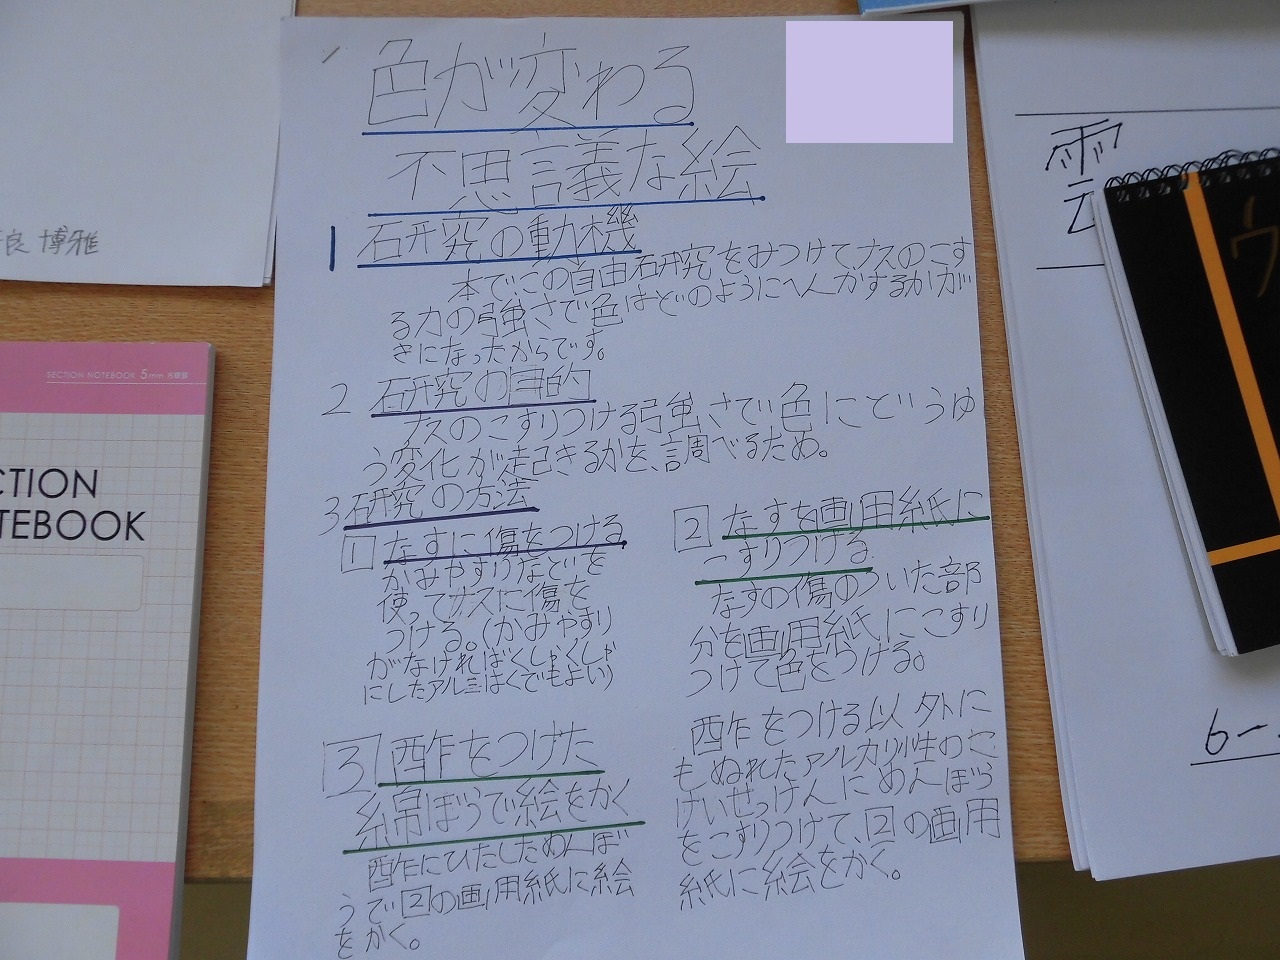 色が変わる
不思議な絵
1 研究の動機
本でこの自由研究をみつけてナスのこす
る力の強さで色はどのようにへんかするかが
きになったからです。
2 研究の目的
ナスのこすりつける強さで色にどうゆ
う変化が起きるかを、調べるため。
3 研究の方法
1 なすに傷をつける
かみやすりなどを
使ってナスに傷を
つける。(かみやすり
がなければくしゃくしゃ
にしたアルミはくでもよい)
2 なすを画用紙に
こすりつける
なすの傷のついた部
分を画用紙にこすり
つけて色をつける。
3 酢をつけた
綿ぼうで絵をかく
酢にひたしためんぼ
うで2の画用紙に絵
をかく。
酢をつける以外に
もぬれたアルカリ性の
けいせっけんにめんぼう
をこすりつけて、2の画用
紙に絵をかく。
良 博雅
SECTION NOTEBOOK 5mm 方眼罫
CTION
TEBOOK
雲
ウ
6-